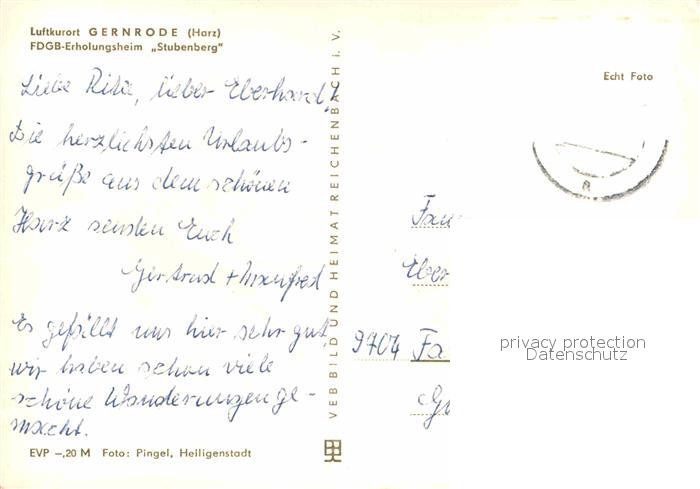 Luftkurort GERNRODE (Harz)
FDGB-Erholungsheim „Stubenberg"
Liebe Rita, lieber Eberhard!
Die herzlichsten Urlaubs-
grüße aus dem schönen
Harz senden Euch
Gertrud + Manfred
Es gefällt uns hier sehr gut,
wir haben schon viele
schöne Wanderungen ge-
macht.
EVP –,20 M Foto: Pingel, Heiligenstadt
VEB BILD UND HEIMAT REICHENBACH i. V.
Echt Foto
Fam
Eber
9704 Fa
privacy protection
Datenschutz